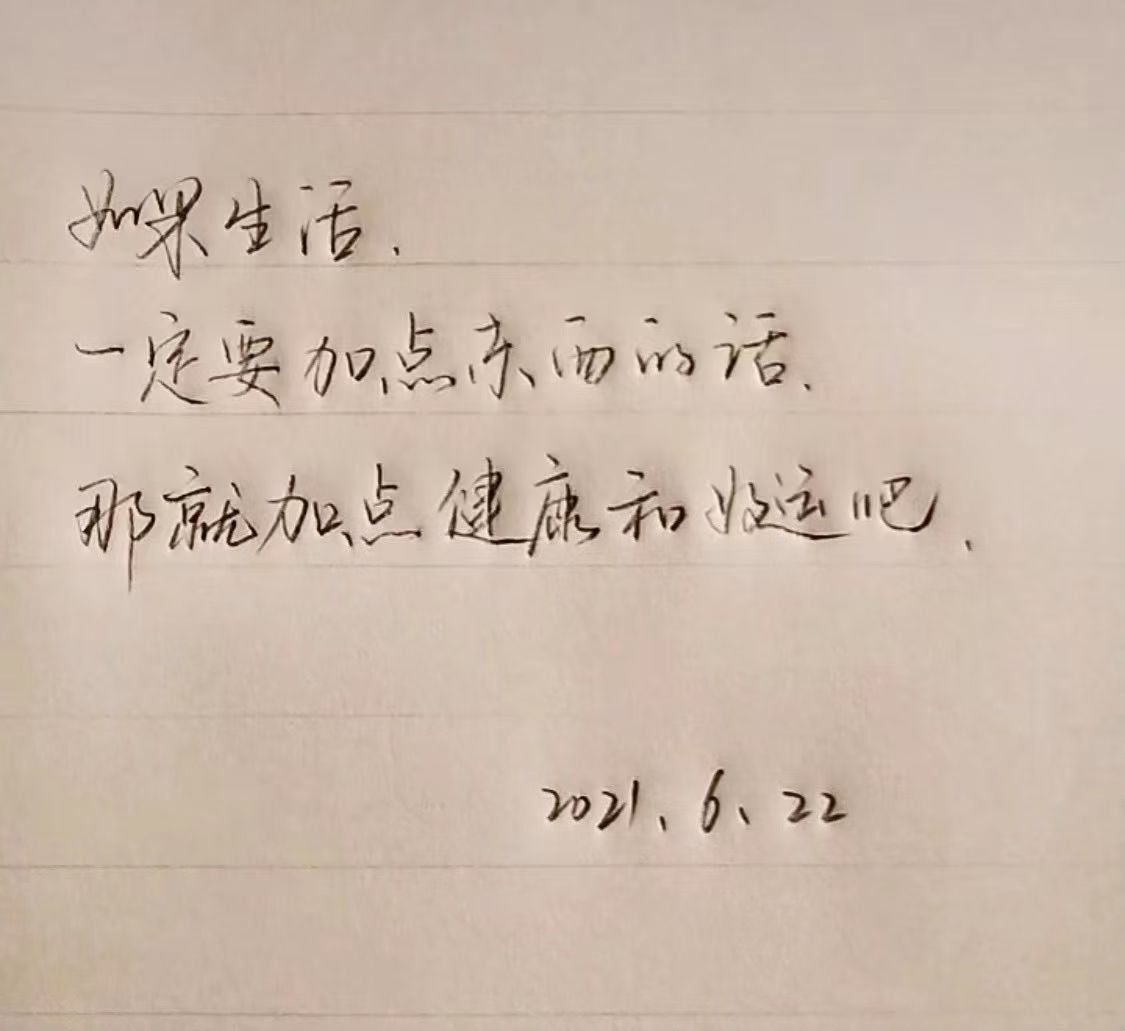 如果生活.
一定要加点东西的话.
那就加点健康和好运吧.
2021、6、22